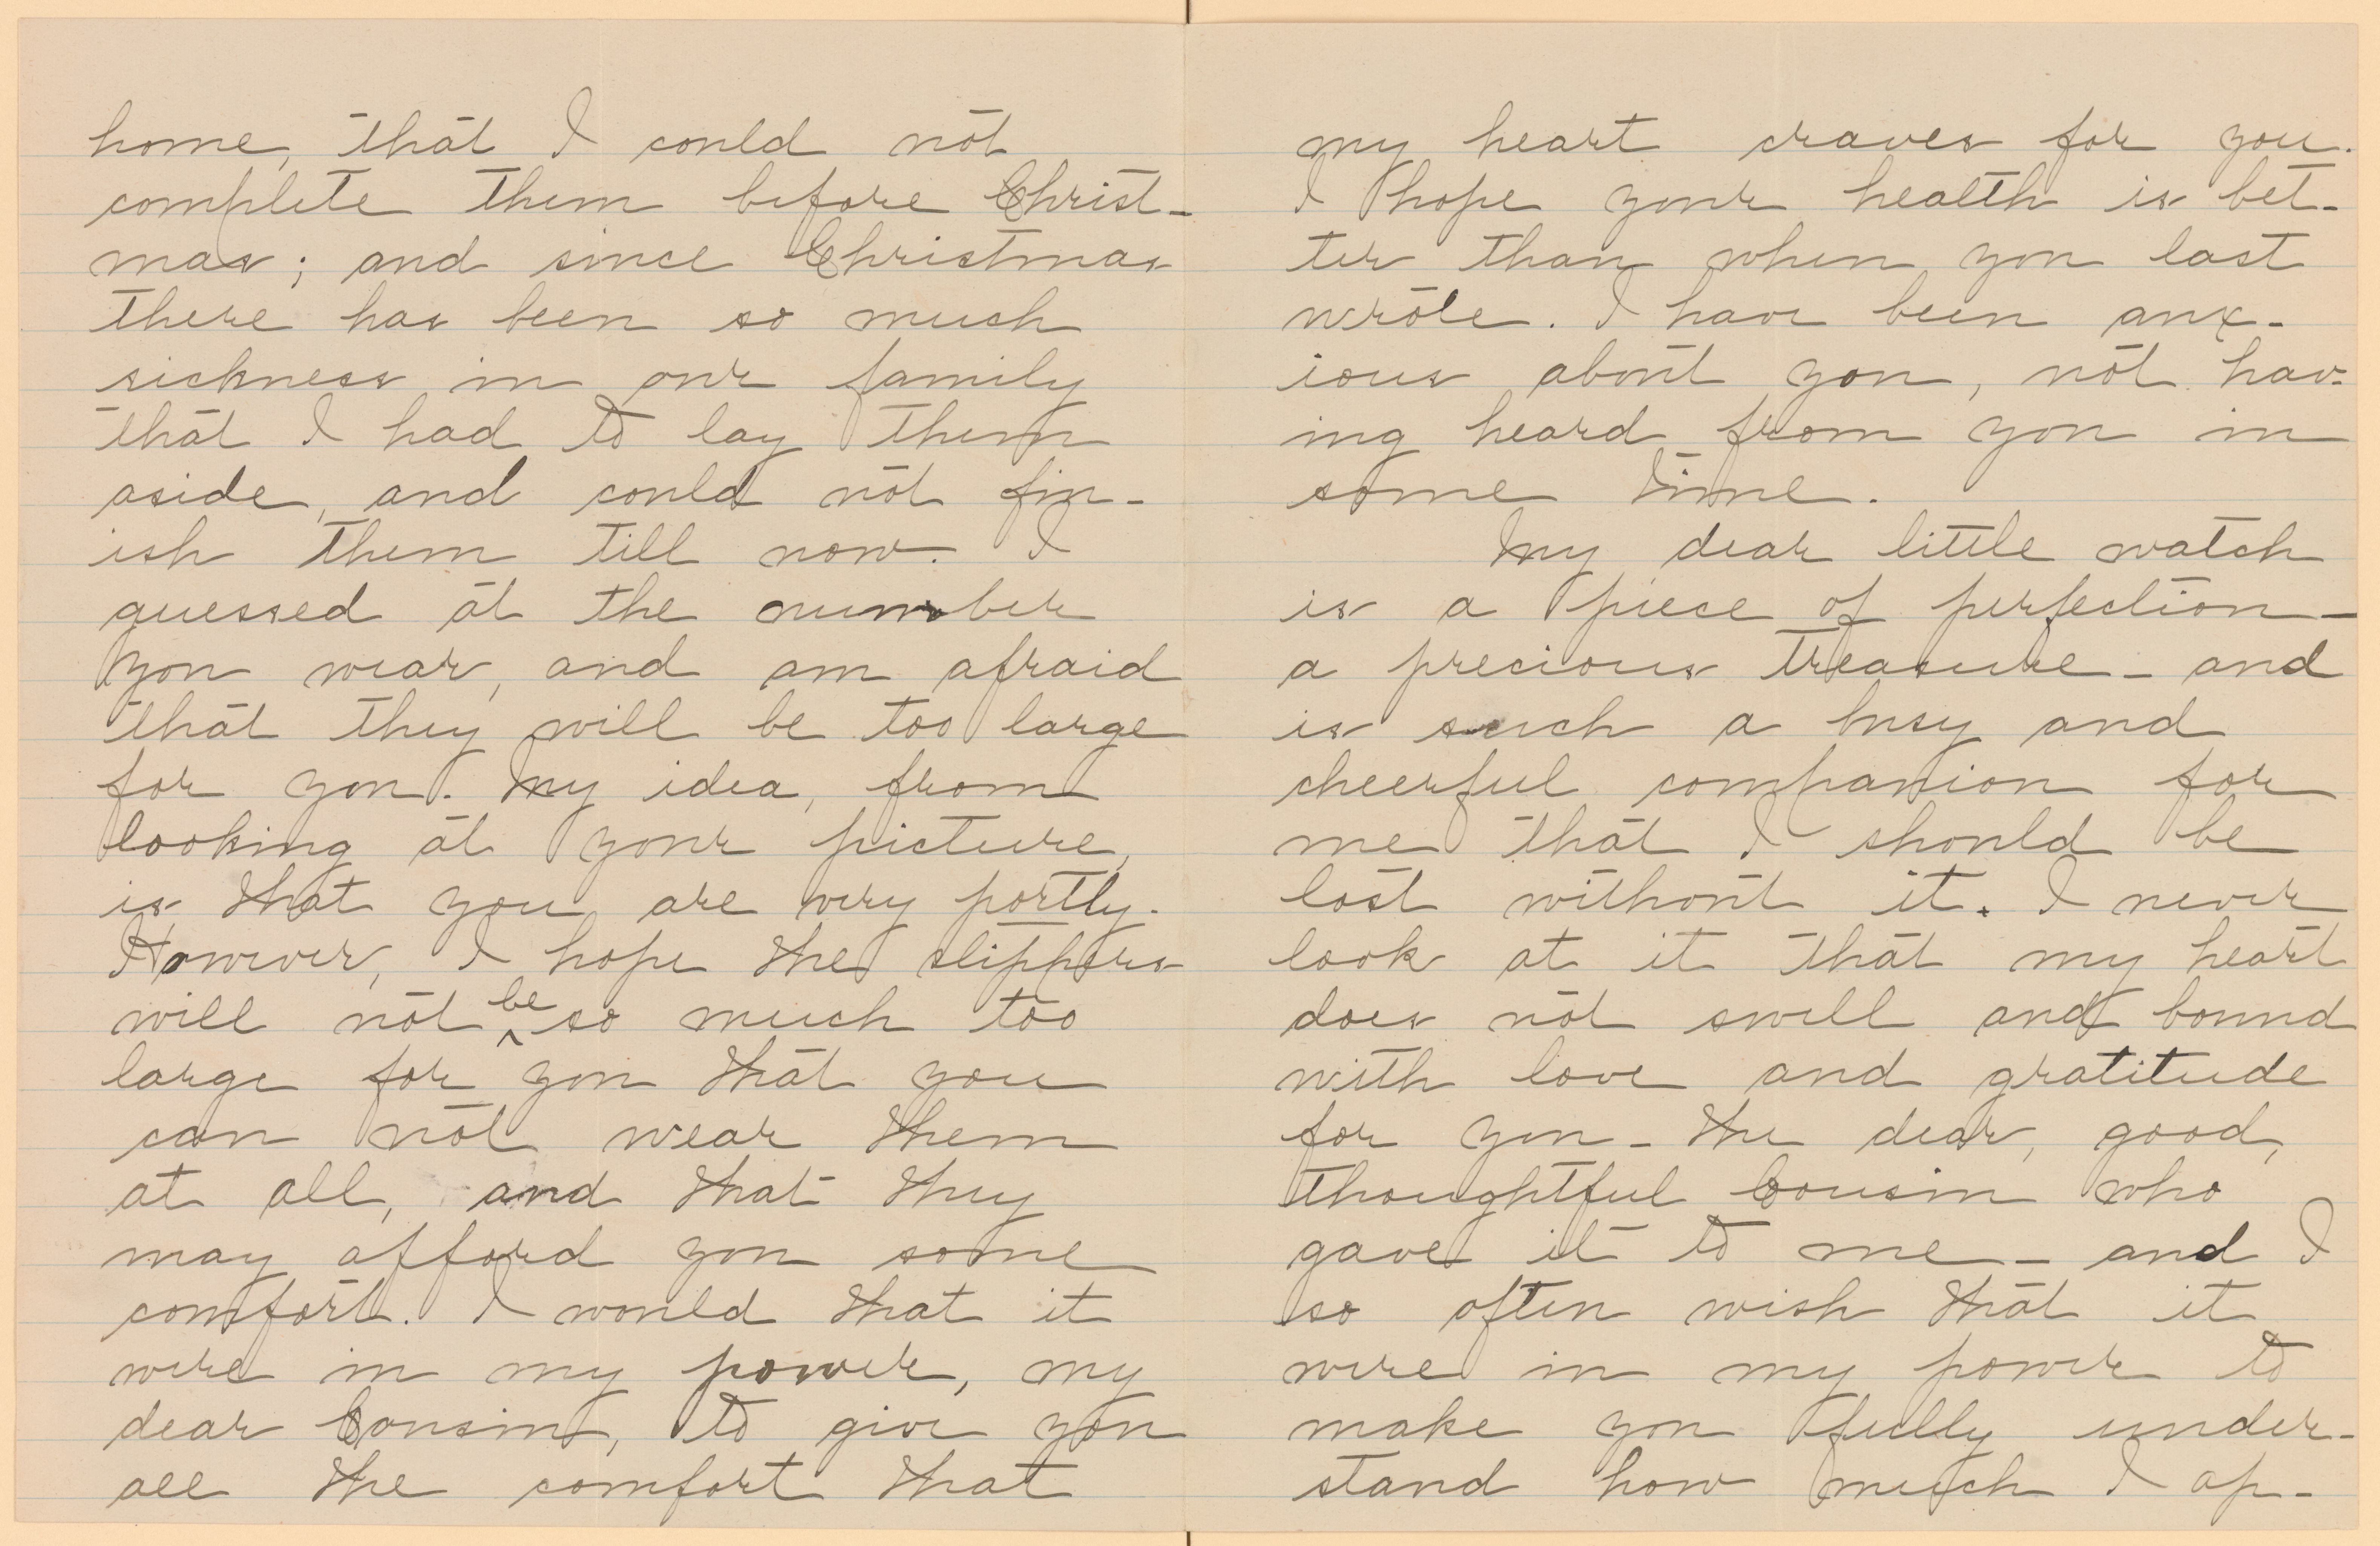 home, that I could not
complete them before Christ-
mas; and since Christmas
there has been so much
sickness in our family
that I had to lay them
aside, and could not fin-
ish them till now. I
guessed at the number
you wear, and am afraid
that they will be too large
for you. My idea, from
looking at your picture,
is that you are very portly.
However, I hope the slippers
will not be so much too
large for you that you
can not wear them
at all, and that they
may afford you some
comfort. I would that it
were in my power, my
dear Cousin, to give you
all the comfort that
my heart craves for you.
I hope your health is bet-
ter than when you last
wrote. I have been anx-
ious about you, not hav-
ing heard from you in
some time.
My dear little watch
is a piece of perfection-
a precious treasure- and
is such a busy and
cheerful companion for
me that I should be
lost without it. I never
look at it that my heart
does not swell and bound
with love and gratitude
for you - the dear, good,
thoughtful Cousin who
gave it to me - and I
so often wish that it
were in my power to
make you fully under-
stand how much I ap-